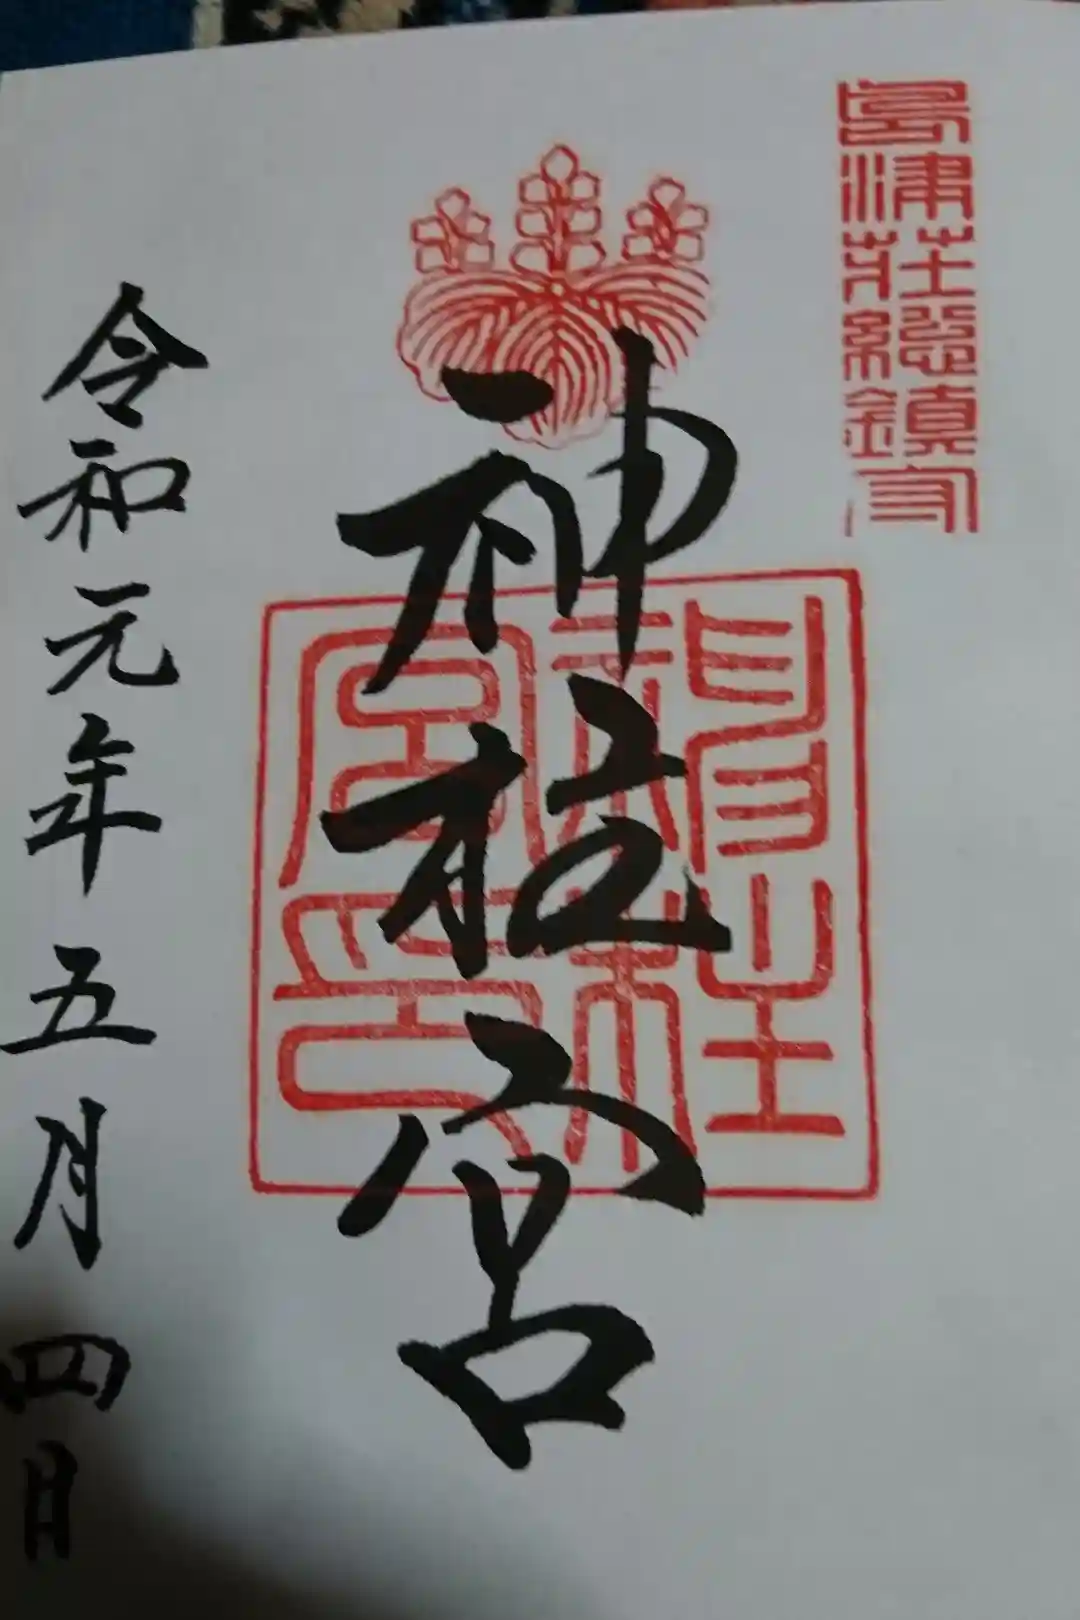 島津荘総鎮守
神柱宮
神柱宮印
令和元年五月四日